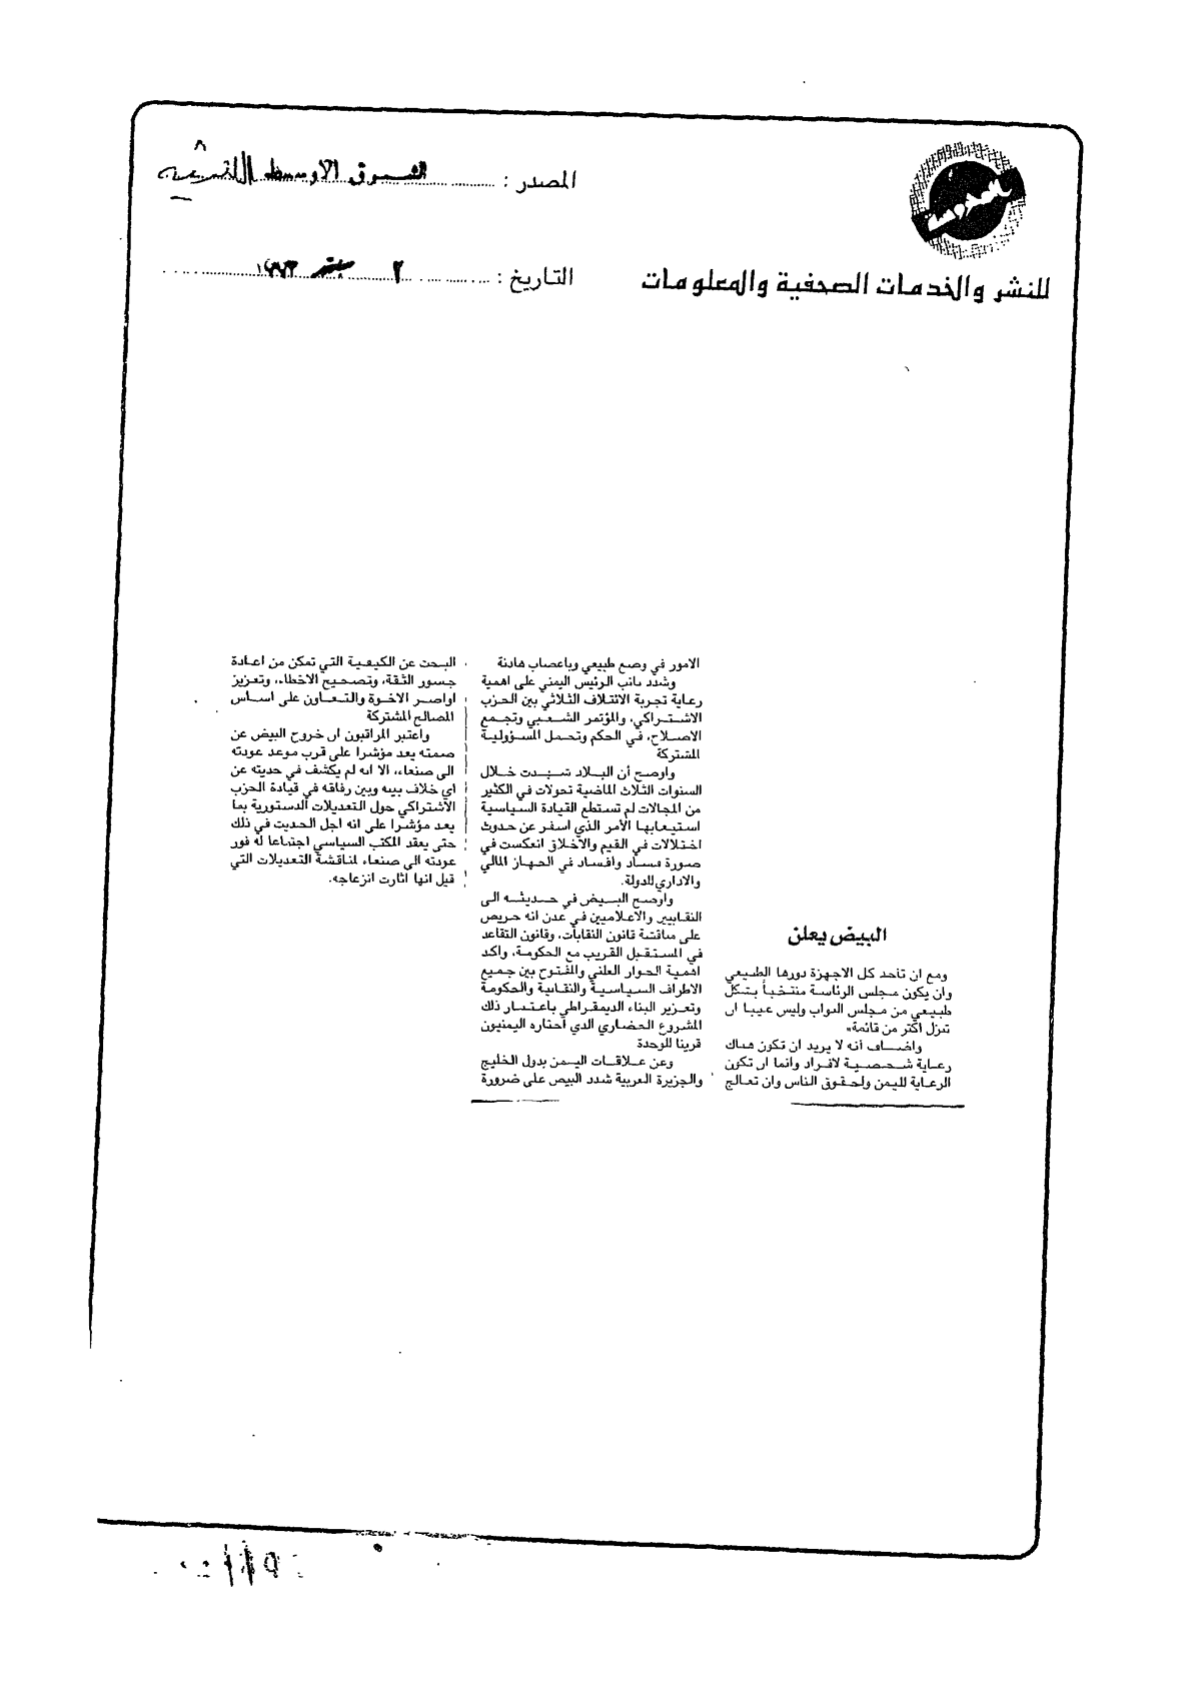 المصدر : الشرق الاوسط
التاريخ : ٢ سبتمبر ١٩٩٣
للنشر والخدمات الصحفية والمعلومات
البيض يعلن
ومع ان تأخذ كل الاجهزة دورها الطبيعي
وان يكون مجلس الرئاسة منتخباً بشكل
طبيعي من مجلس النواب وليس عيبا ان
تنزل اكثر من قائمة»
واضاف أنه لا يريد ان تكون هناك
رعاية شخصية لافراد وانما ان تكون
الرعاية لليمن ولحقوق الناس وان تعالج
الامور في وضع طبيعي وباعصاب هادئة
وشدد نائب الرئيس اليمني على اهمية
رعاية تجربة الائتلاف الثلاثي بين الحزب
الاشتراكي، والمؤتمر الشعبي وتجمع
الاصلاح، في الحكم وتحمل المسؤولية
المشتركة
واوضح أن البلاد شهدت خلال
السنوات الثلاث الماضية تحولات في الكثير
من المجالات لم تستطع القيادة السياسية
استيعابها الأمر الذي اسفر عن حدوث
اختلالات في القيم والأخلاق انعكست في
صورة فساد وافساد في الجهاز المالي
والاداري للدولة.
واوضح البيض في حديثه الى
النقابيين والاعلاميين في عدن انه حريص
على مناقشة قانون النقابات، وقانون التقاعد
في المستقبل القريب مع الحكومة، واكد
اهمية الحوار العلني والمفتوح بين جميع
الاطراف السياسية والنقابية والحكومة
وتعزير البناء الديمقراطي باعتبار ذلك
المشروع الحضاري الذي أختاره اليمنيون
قرينا للوحدة
وعن علاقات اليمن بدول الخليج
والجزيرة العربية شدد البيض على ضرورة
البحث عن الكيفية التي تمكن من اعادة
جسور الثقة، وتصحيح الاخطاء، وتعزيز
اواصر الاخوة والتعاون على اساس
المصالح المشتركة
واعتبر المراقبون ان خروج البيض عن
صمته يعد مؤشرا على قرب موعد عودته
الى صنعاء، الا انه لم يكشف في حديثه عن
اي خلاف بينه وبين رفاقه في قيادة الحزب
الاشتراكي حول التعديلات الدستورية بما
يعد مؤشرا على انه اجل الحديث في ذلك
حتى يعقد المكتب السياسي اجتماعا له فور
عودته الى صنعاء لمناقشة التعديلات التي
قيل انها اثارت انزعاجه.